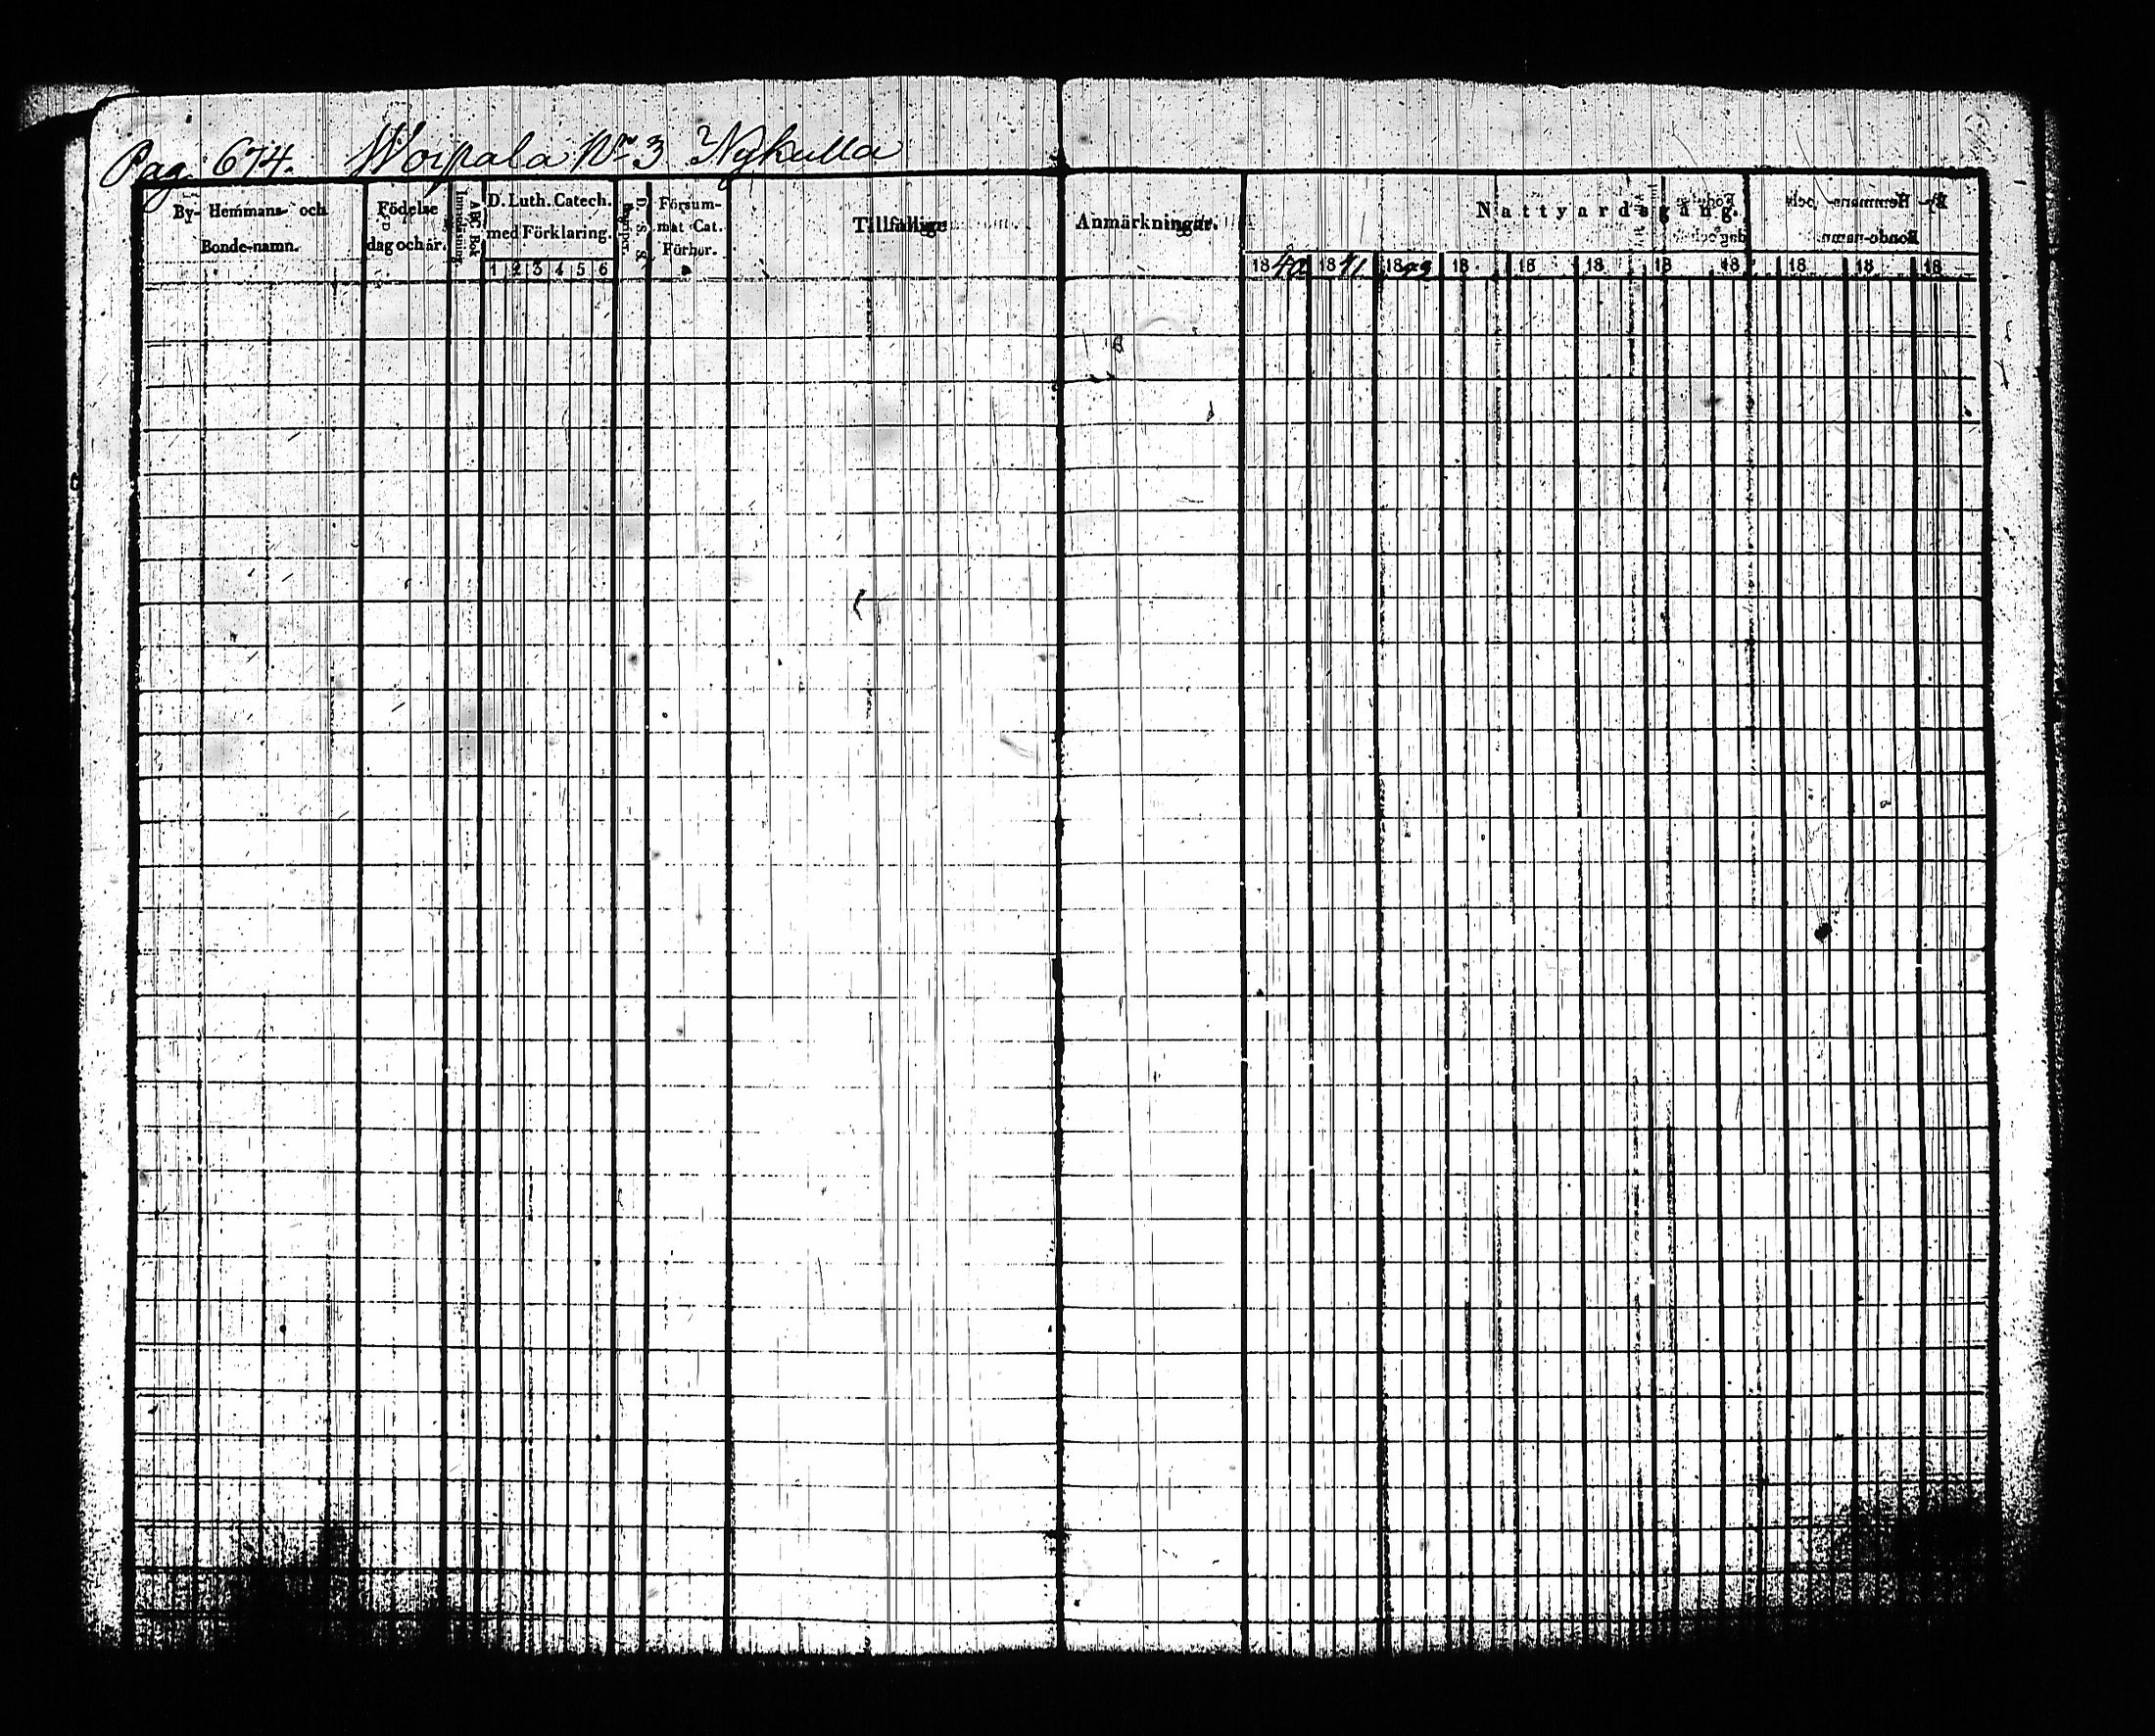 Pag. 674. Woipala No 3 Nykulla
By- Hemmans- och Bonde-namn.
Födelse dag och år.
ABC Bok
Innanläsning
D. Luth. Catech. med Förklaring.
1 2 3 4 5 6
D. S. S.
Försum- mat Cat. Förhör.
Tillfällige
Anmärkningar.
Nattvardsgång.
1840 1841 18 18 18 18 18 18 18 18 18